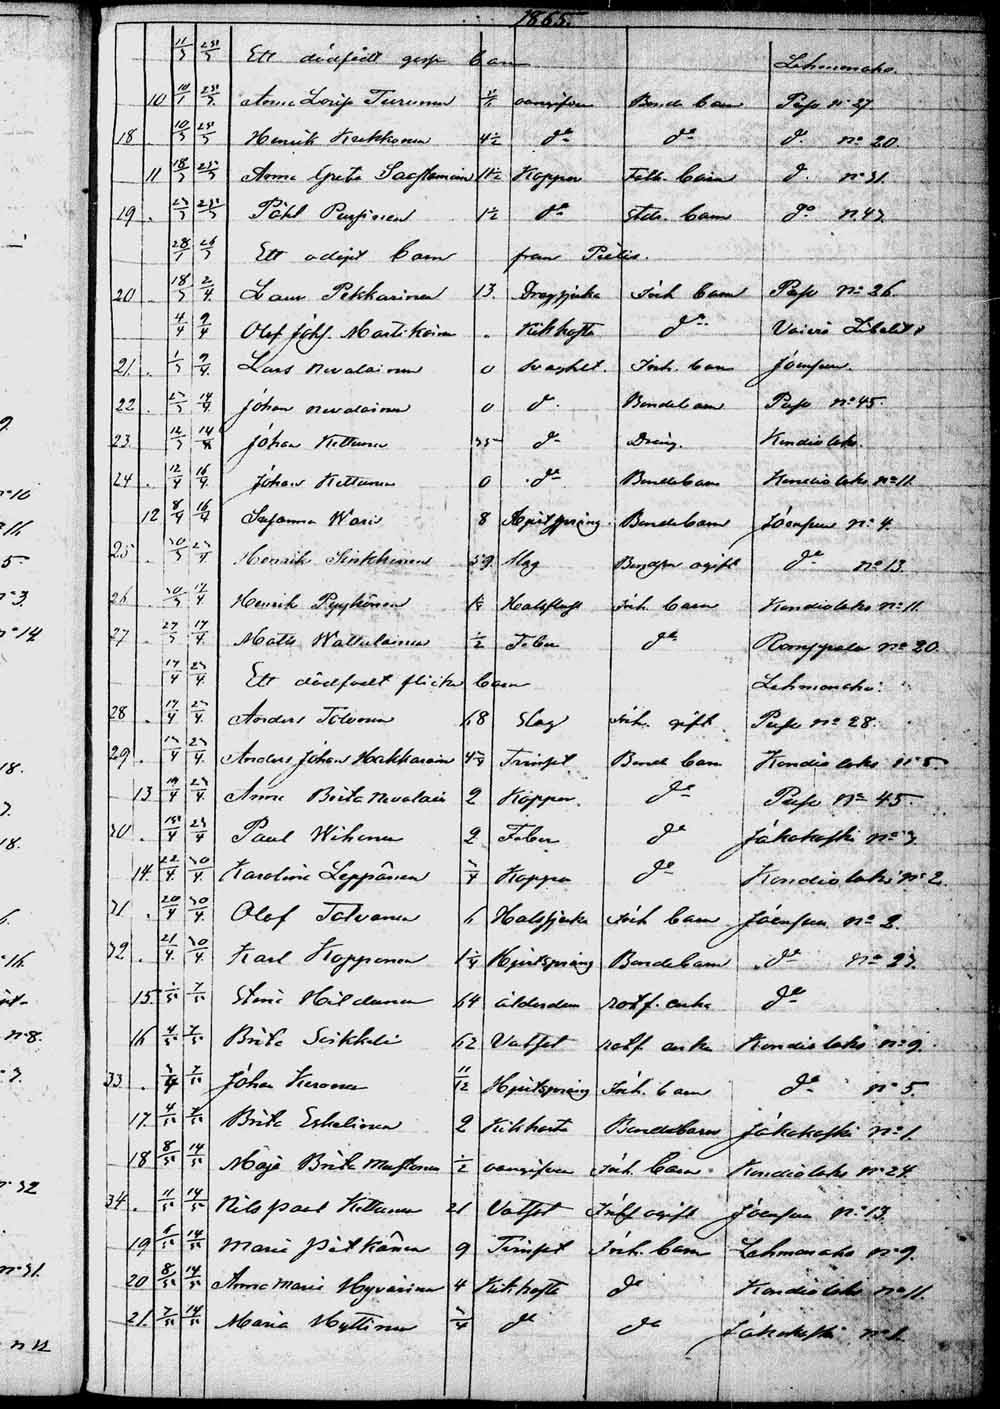 1865.
11/3 25/3 Ett dödfödt gosse barn Lehmonaho.
10 10/1 25/3 Anna Lovisa Turunen vangifven Bonde barn Puso n:o 27
18 10/3 25/3 Henrik Kukkonen 4 1/2 d:o d:o d:o n:o 20.
11 18/3 25/3 Anna Greta Saastamoin 1 1/2 Koppor Fatt. barn d:o n:o 31.
19 23/3 25/3 Påhl Pursiainen 1 1/2 d:o barn d:o n:o 43
28/1 26/3 Ett odöpt barn från Pielis.
20 18/3 2/4 Laur Pekkarinen 13. Dragsjuka Inh barn Puso n:o 26.
4/4 9/4 Olof Joh. Martikain . Kikhosta d:o Libelits
21. 1/3 9/4 Lars Nevalainen 0 svaghet. Inh. barn Joensuu.
22. 23/3 14/4 Johan Nevalainen 0 d:o Bondebarn Puso n:o 45.
23. 12/3 14/4 Johan Kettunen 35 d:o Dräng. Kondiolaks.
24 12/4 16/4 Johan Kettunen 0 d:o Bondebarn Kondiolaks n:o 11.
12 8/4 16/4 Susanna Waris 8 Hjertsprång. Bondebarn Joensuu n:o 4.
25 30/3 23/4 Henrik Sirkkunen 59. Slag Bondeson ogift d:o n:o 13.
26 30/3 17/4 Henrik Pyykönen Halsfluss Inh. barn Kondiolaks n:o 11.
27. 27/3 17/4 Matts Wattulainen 1/2 Feber d:o Romppala n:o 20.
17/4 23/4 Ett dödfödt flicke barn Lehmonaho.
28 17/4 23/4 Anders Tolvanen 68 Slag Inh. gift Puso n:o 28.
29. 13/4 23/4 Anders Johan Hakkarain 4 3/4 Trinset Bonde barn Kondiolaks n:o 5.
13 19/4 23/4 Anna Brita Nevalain 2 Koppor. d:o Puso n:o 45.
30 15/4 23/4 Paul Wihonen 2 Feber d:o Jakokoski n:o 3.
14. 22/4 30/4 Karolina Leppänen 3/4 Koppor d:o Kondiolaks n:o 2.
31 20/4 30/4 Olof Tolvanen 6 Halssjuka Inh barn Joensuu n:o 2.
32. 21/4 30/4 Karl Kopponen 1 1/4 Hjertsprång Bondebarn d:o n:o 23.
15 1/5 7/5 Stina Hildunen 64 ålderdom rotf. enka d:o
16 4/5 7/5 Brita Sirkkeli 62 Vatsot rotf. enka Kondiolaks n:o 9.
33 . 3/4 7/5 Johan Kuronen 11/12 Hjertsprång Inh. barn d:o n:o 5.
17. 4/5 7/5 Brita Eskelinen 2 Kikhosta Bondebarn Jakokoski n:o 1.
18 8/5 14/5 Maja Brita Mustonen 1/2 vangifven Inh. barn Kondiolaks n:o 24.
34. 11/5 14/5 Nils Paul Kettunen 21 Vatsot ogift Joensuu n:o 13.
19 6/5 14/5 Maria Pitkänen 9 Trinset Inh. barn Lehmonaho n:o 9.
20 8/5 14/5 Anna Maria Hyvärinen 4 Kikhosta d:o Kondiolaks n:o 11.
21. 7/5 14/5 Maria Hyttinen 3/4 d:o d:o Jakokoski n:o 1.